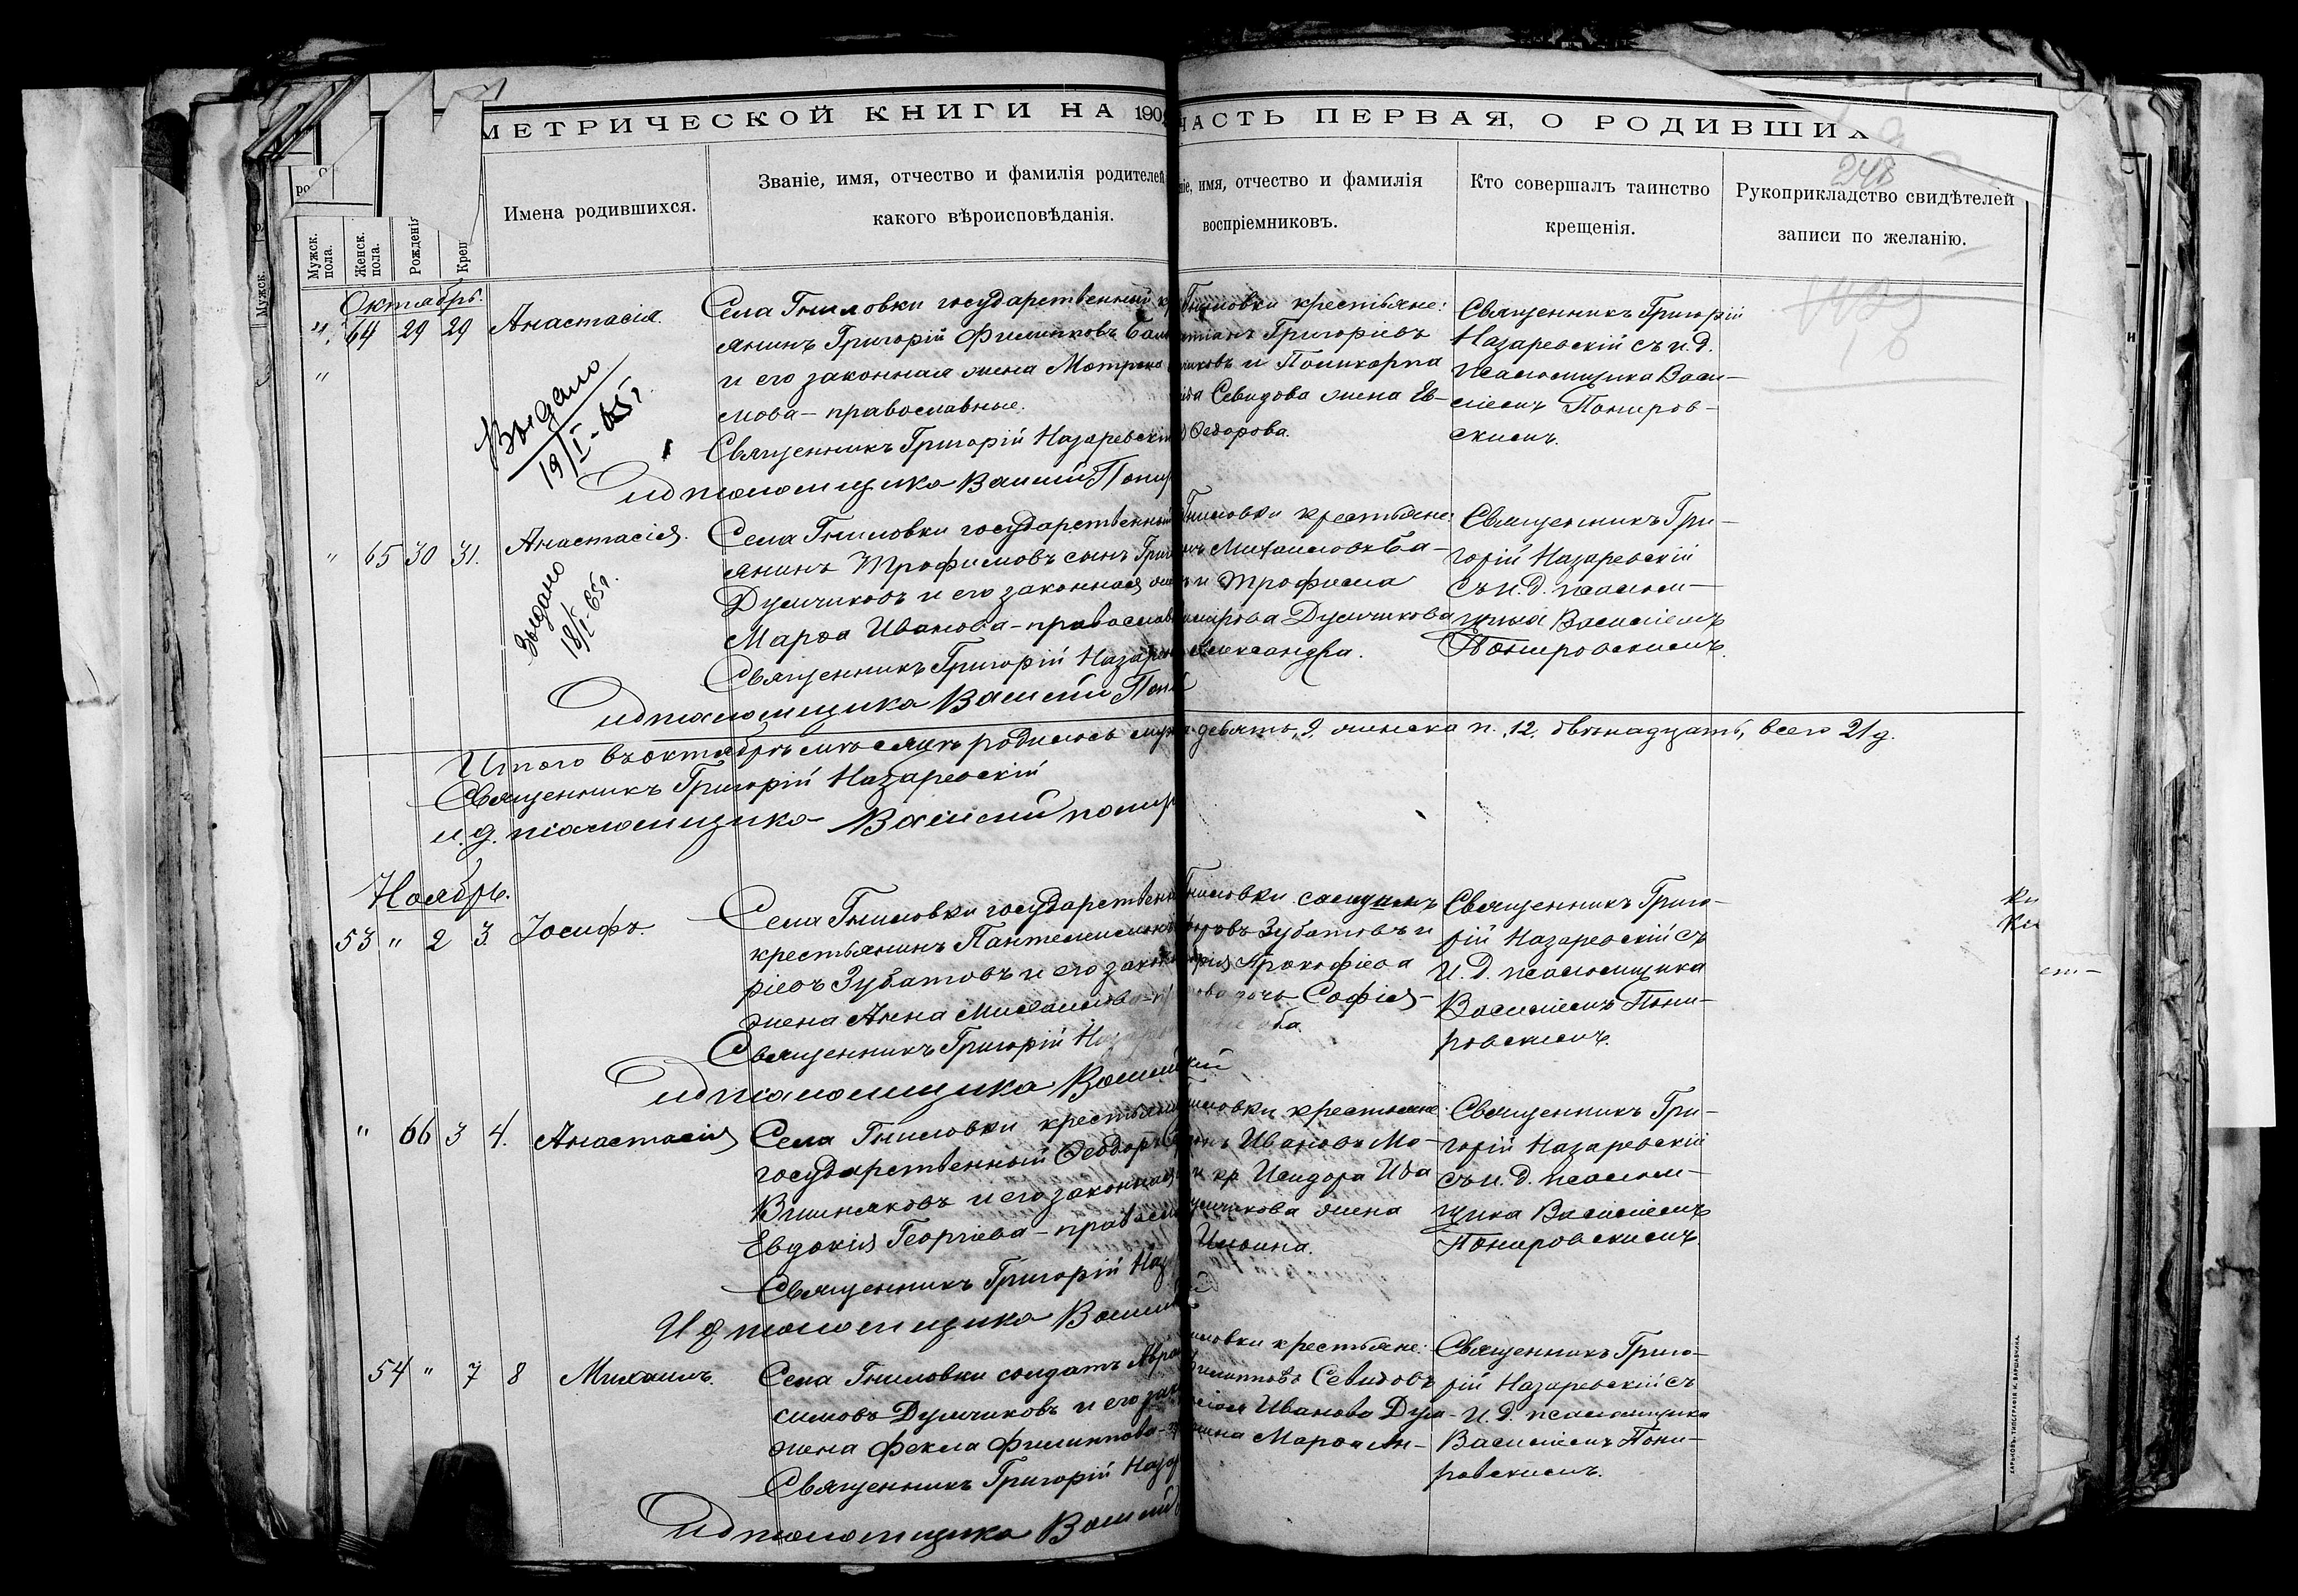 МЕТРИЧЕСКОЙ КНИГИ НА 190
ЧАСТЬ ПЕРВАЯ, О РОДИВШИХ
248
Мужск. пола.
Женск. пола.
Рожденія
Крещ
Имена родившихся.
Званіе, имя, отчество и фамилія родителей
какого вѣроисповѣданія.
ніе, имя, отчество и фамилія
воспріемниковъ.
Кто совершалъ таинство
крещенія.
Рукоприкладство свидѣтелей
записи по желанію.
Октябрь.
" 64 29 29 Анастасія.
Села Гниловки государственный кр
янинъ Григорій Филипповъ
и его законная жена Матрона
мова – православные.
Священникъ Григорій Назаревскій
ид псаломщика Василій Пони
Гниловки крестьяне:
Григоріевъ
и Поликарпа
Севидова жена Ев-
Ѳедорова.
Священникъ Григорій
Назаревскій съ и.д.
псаломщика Васи-
ліемъ Пониров-
скимъ.
Выдано
19/I-65г.
" 65 30 31. Анастасія.
Выдано
18/I-65г.
Села Гниловки государственный
янинъ Трофимовъ сынъ Григ
Думчиковъ и его законная же
Марѳа Иванова – православ
Священникъ Григорій Назарев
ид псаломщика Василій Пони
Гниловки крестьяне:
Михаиловъ Ба-
и Трофима
Думчикова
Александра.
Священникъ Гри-
горій Назаревскій
съ и.д. псалом-
щика Василіемъ
Понировскимъ.
Итого въ октябрѣ мѣсяцѣ родилось муж
девять, 9, женска п. 12, двѣнадцать, всего 21 д.
Священникъ Григорій Назаревскій
и.д. псаломщика Василій Понир
Ноябрь.
53 " 2 3. Іосифъ.
Села Гниловки государственн
крестьянинъ Пантелеимонъ
ріевъ Зубатовъ и его закон
жена Анна Михаилова
Священникъ Григорій Назарев
ид псаломщика Василій
Гниловки
Зубатовъ и
Прокофіева
дочь Софія
оба.
Священникъ Григо-
рій Назаревскій съ
И.Д. псаломщика
Василіемъ Пони-
ровскимъ.
" 66 3 4. Анастасія
Села Гниловки крестьянин
государственный Ѳеодоръ
Вишняковъ и его законная
Евдокія Георгіева – правосл
Священникъ Григорій Наз
И д псаломщика Василій
Гниловки крестьяне:
Ивановъ Мо-
и кр. Исидора Ива
Думчикова жена
Ильина.
Священникъ Гри-
горій Назаревскій
съ и.д. псалом-
щика Василіемъ
Понировскимъ.
54 " 7 8 Михаилъ.
Села Гниловки солдатъ Авра
симовъ Думчиковъ и его зак
жена Фекла Филиппова
Священникъ Григорій Назар
ид псаломщика Василій
Гниловки крестьяне:
Филипповъ Севидовъ
Иванова Дум-
Марѳа Ан-
Священникъ Григо-
рій Назаревскій съ
И.Д. псаломщика
Василіемъ Пони-
ровскимъ.